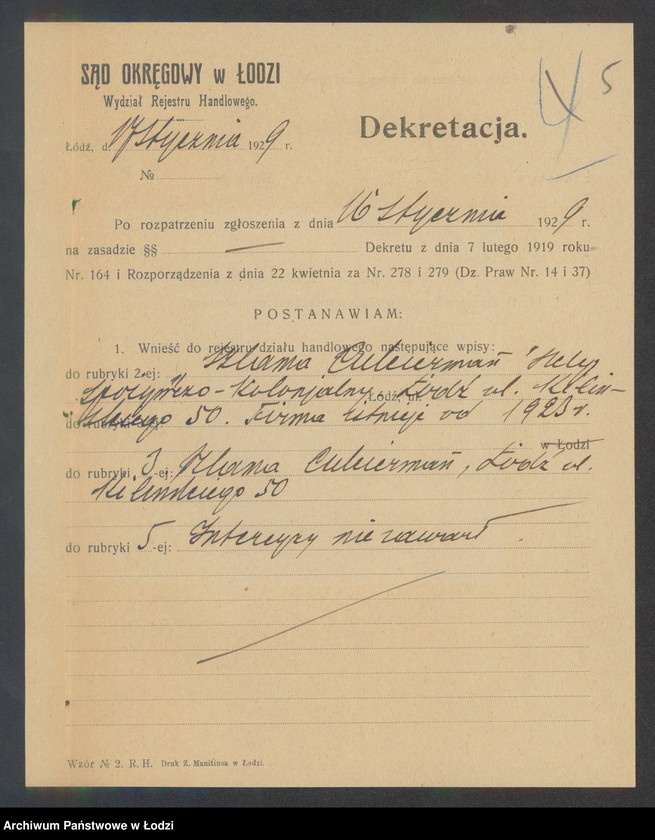 SĄD OKRĘGOWY w ŁODZI
Wydział Rejestru Handlowego.
5
Dekretacja.
Łódź, d. 17 Stycznia 1929 r.
№
Po rozpatrzeniu zgłoszenia z dnia 16 Stycznia 1929 r.
na zasadzie §§ — Dekretu z dnia 7 lutego 1919 roku
Nr. 164 i Rozporządzenia z dnia 22 kwietnia za Nr. 278 i 279 (Dz. Praw Nr. 14 i 37)
POSTANAWIAM:
1. Wnieść do rejestru działu handlowego następujące wpisy:
do rubryki 2-ej: "Szlama Cukierman" Sklep
spożywczo-kolonjalny. Łódź, ul. Kilin-
skiego 50. Firma istnieje od 1923 r.
w Łodzi
do rubryki 3-ej: Szlama Cukierman, Łódź ul.
Kilinskiego 50
do rubryki 5-ej: Intercyzy nie zawarł.
Wzór № 2. R. H. Druk Z. Manitiusa w Łodzi.
Archiwum Państwowe w Łodzi